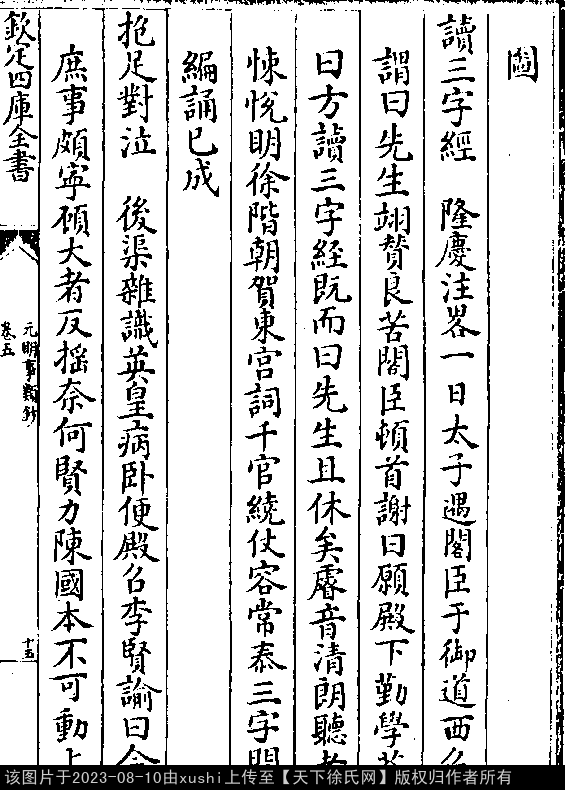 圖
讀三字經　隆慶注畧一日太子遇閣臣于御道西
謂曰先生翊賛良苦閣臣頓首謝曰願殿下勤學
曰方讀三字經既而曰先生且休矣睿音清朗聽
悚悅明徐階朝賀東宮詞千官繞仗容常泰三字
編誦已成
抱足對泣　後渠雜識英皇病卧便殿召李賢諭曰今
庶事頗寜頋大者反揺奈何賢力陳國本不可動
欽定四庫全書
元明事類鈔
卷五
十五
该图片于2023-08-10由xushi上传至【天下徐氏网】版权归作者所有